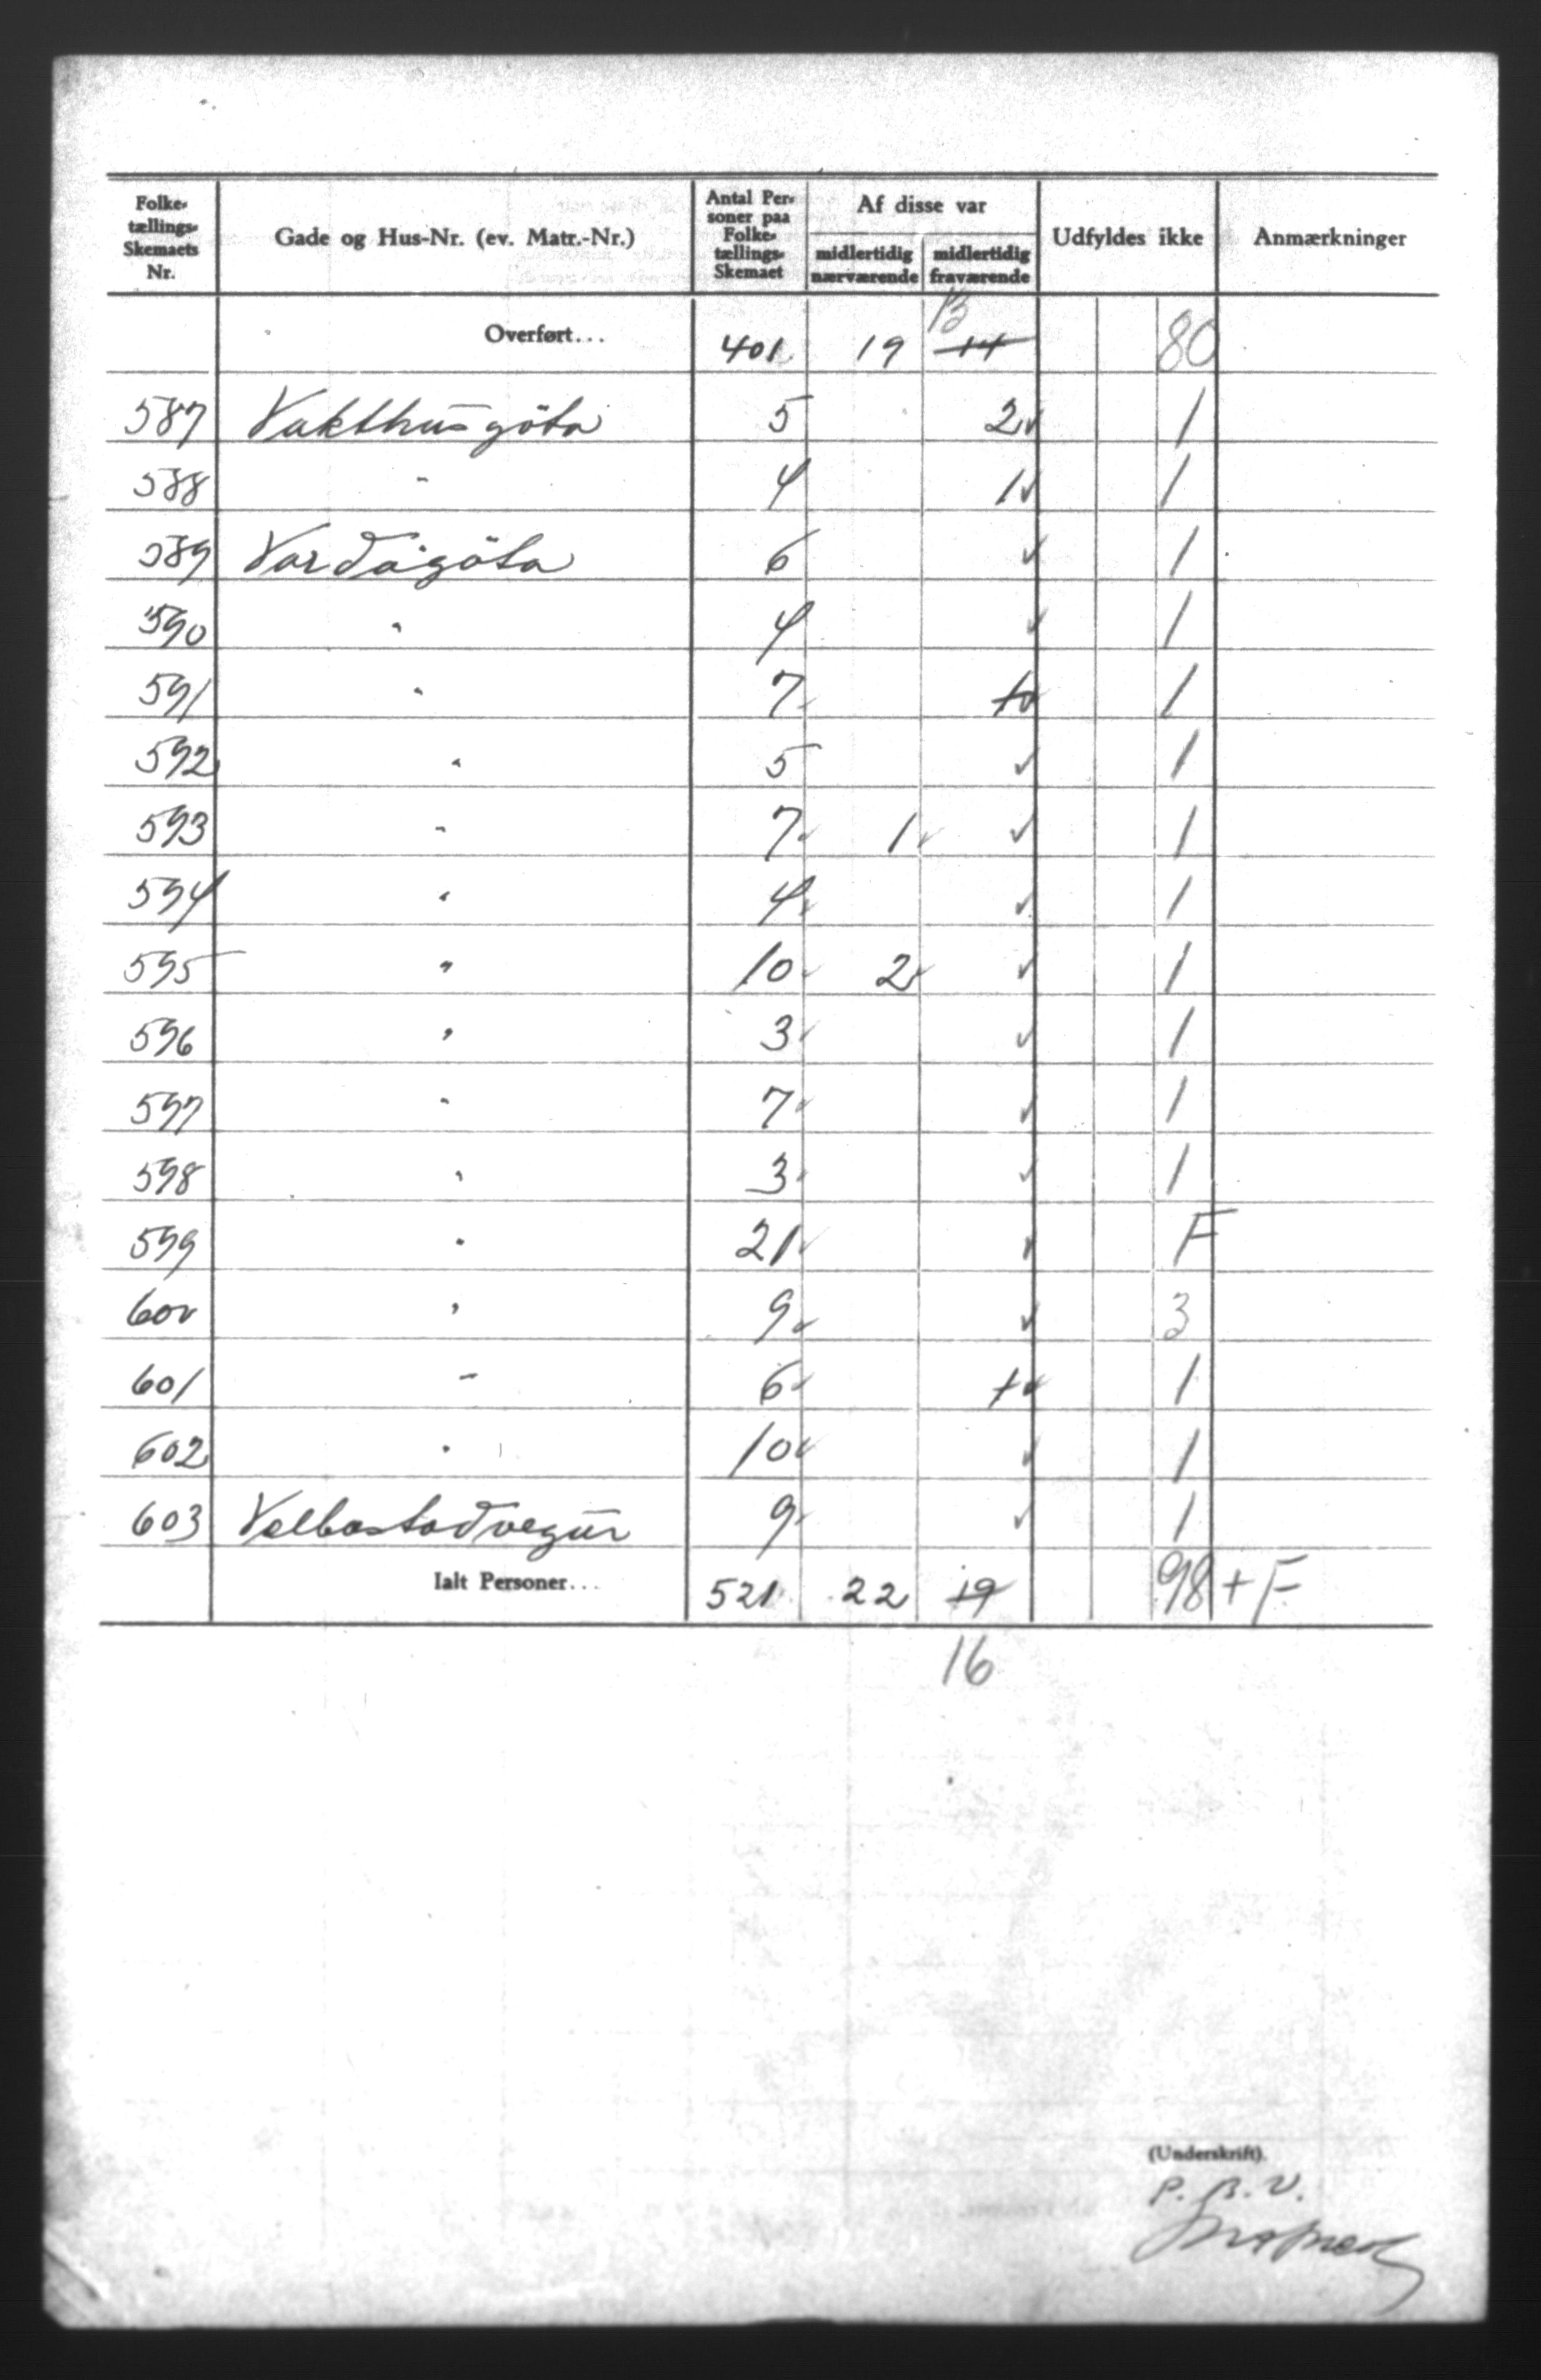 Folke-tællings-Skemaets Nr. | Gade og Hus-Nr. (ev. Matr.-Nr.) | Antal Personer paa Folke-tællings-Skemaet | Af disse var midlertidig nærværende | midlertidig fraværende | Udfyldes ikke | Anmærkninger
Overført... 401 19 14 13 80
587 Vakthusgöta 5 2 1
588 " 4 1 1
589 Vardagöta 6 1
590 " 4 1
591 " 7 1 1
592 " 5 1
593 " 7 1 1
594 " 4 1
595 " 10 2 1
596 " 3 1
597 " 7 1
598 " 3 1
599 " 21 F
600 " 9 3
601 " 6 1 1
602 " 10 1
603 Velbastadvegur 9 1
Ialt Personer... 521 22 19 98 + F
16
(Underskrift).
P. B. V.